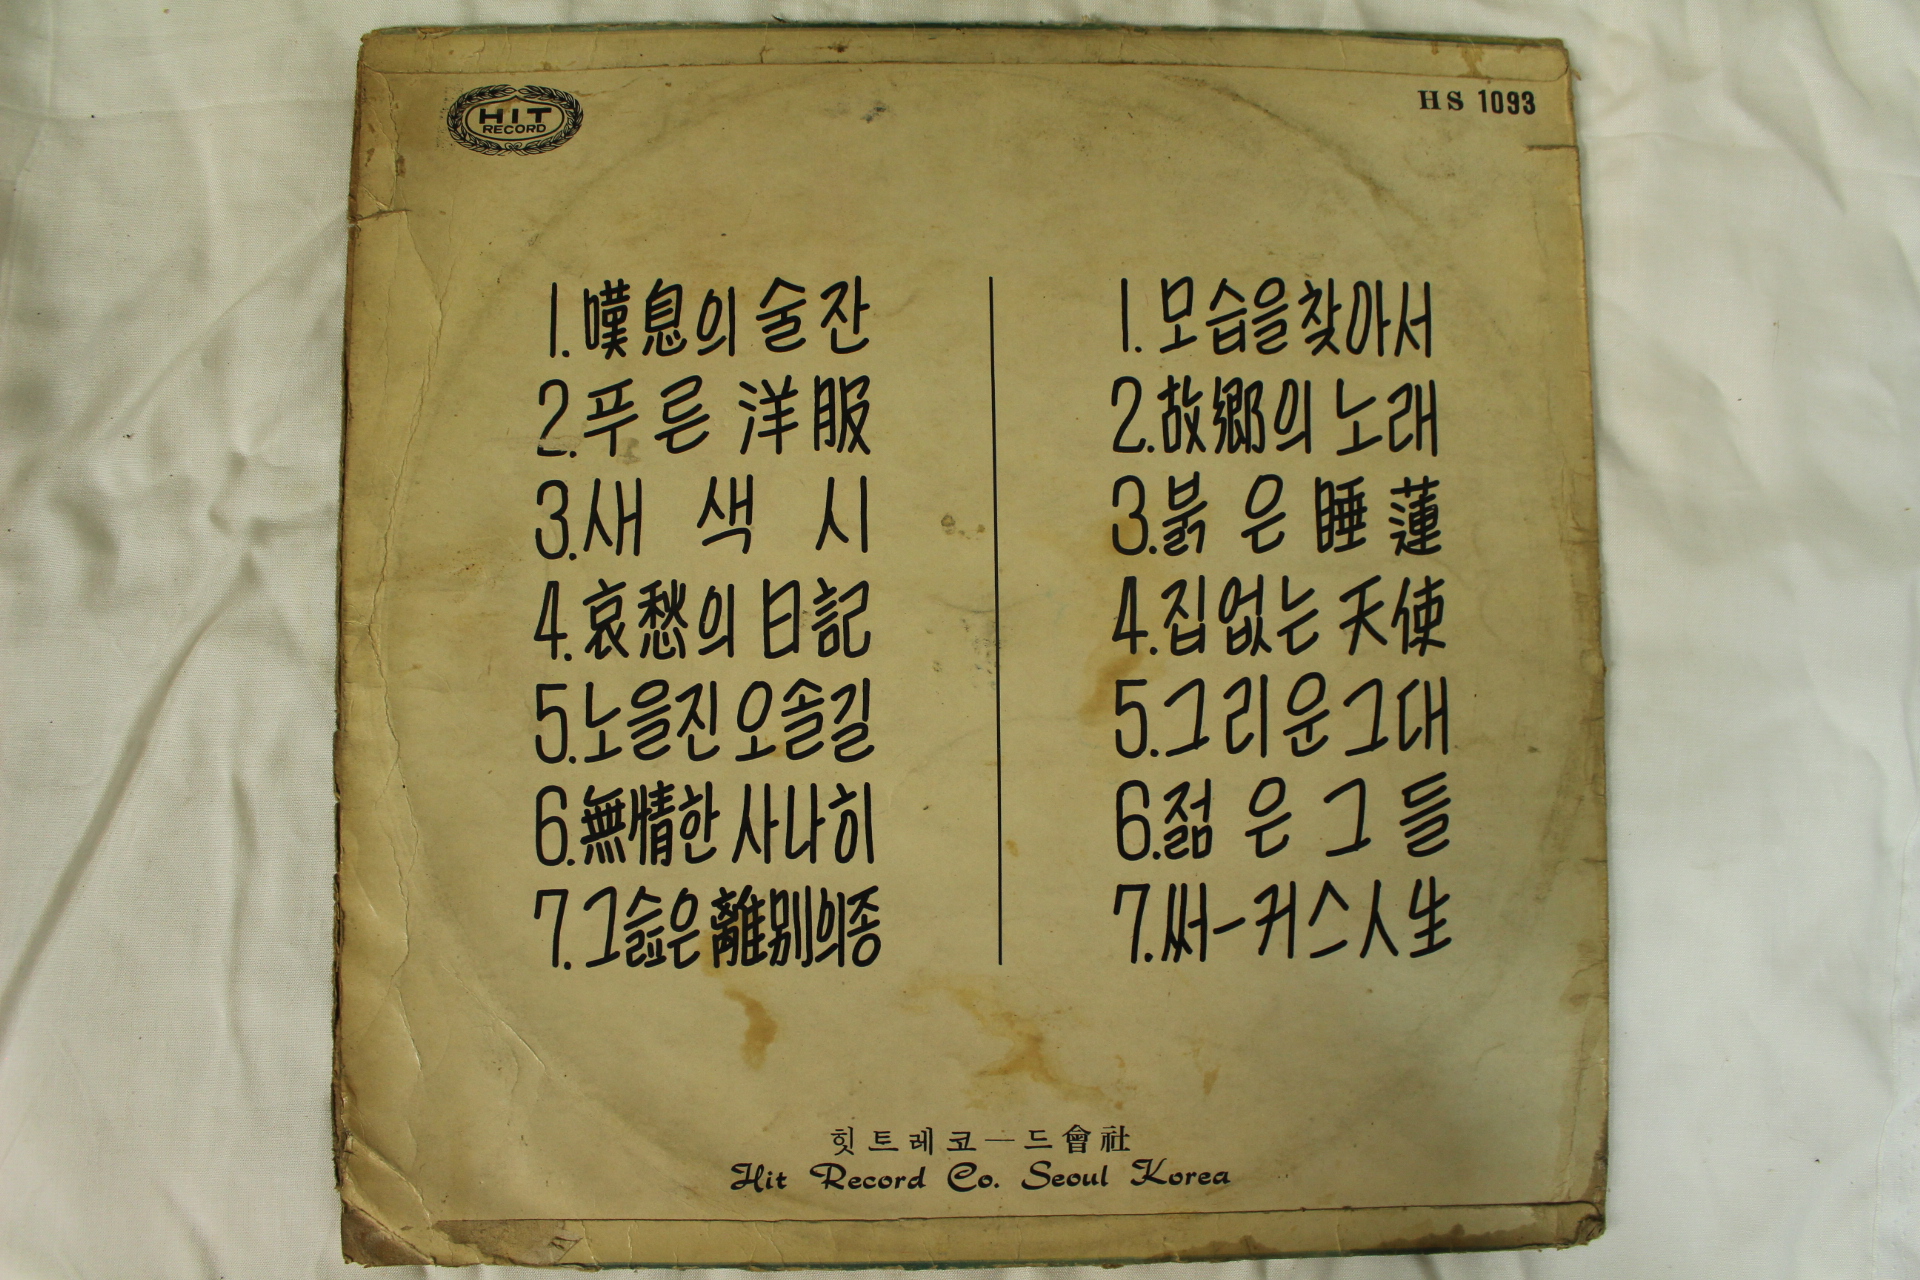 HIT
RECORD
HS 1093
1.嘆息의 술잔
2.푸른 洋服
3.새색시
4.哀愁의 日記
5.노을진 오솔길
6.無情한 사나히
7.그슲은 離別의종
1.모습을 찾아서
2.故鄕의 노래
3.붉은 睡蓮
4.집없는 天使
5.그리운 그대
6.젊은 그들
7.써ー커스人生
힛트레코ー드會社
Hit Record Co. Seoul Korea